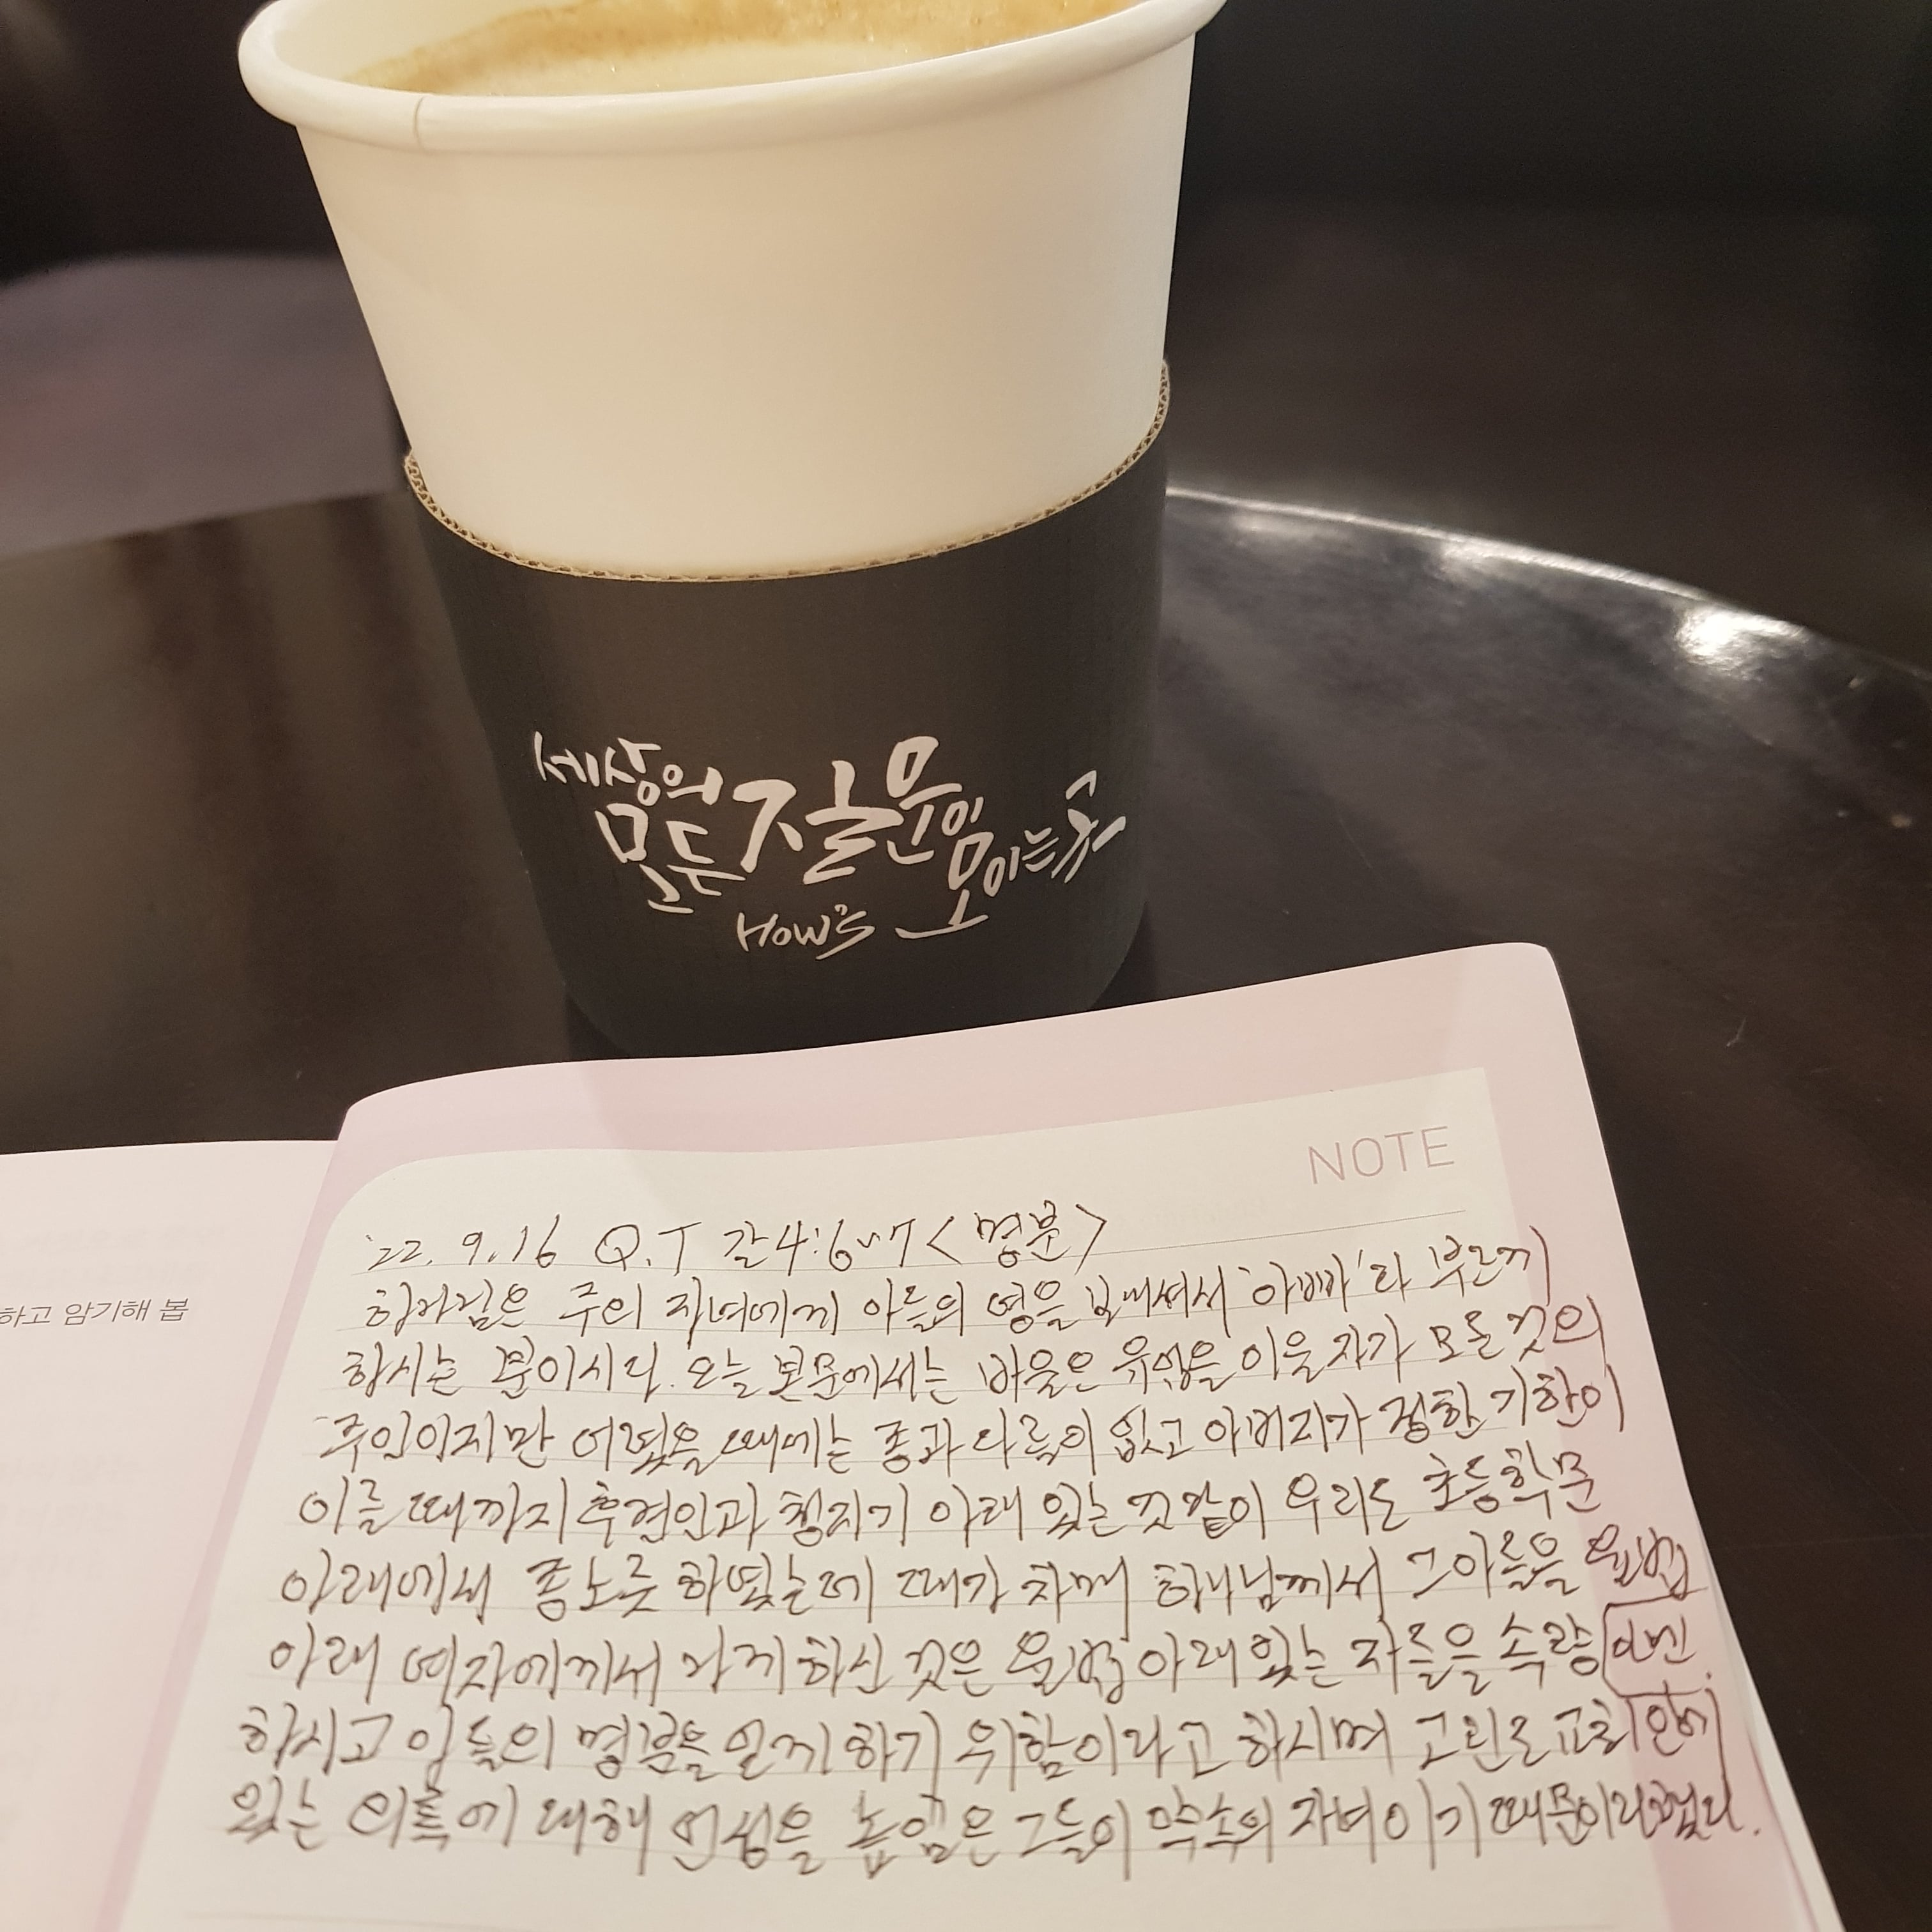 세상의
모든 질문이
모이는 곳
HOW's
NOTE
하고 암기해 봅
'22. 9. 16 Q.T 갈4:6~7 <명분>
하나님은 주의 자녀에게 아들의 영을 보내셔서 '아빠'라 부르게
하시는 분이시다. 오늘 본문에서는 바울은 유업을 이을 자가 모든 것의
주인이지만 어렸을 때에는 종과 다름이 없고 아버지가 정한 기한이
이를 때까지 후견인과 청지기 아래 있는 것 같이 우리도 초등학문
아래에서 종노릇 하였는데 때가 차매 하나님께서 그 아들을 율법
아래 여자에게서 나게 하신 것은 율법 아래 있는 자들을 속량
하시고 아들의 명분을 얻게 하기 위함이라고 하시며 고린도 교회 안에
있는 의혹에 대해 언성을 높임은 그들이 약속의 자녀이기 때문이라